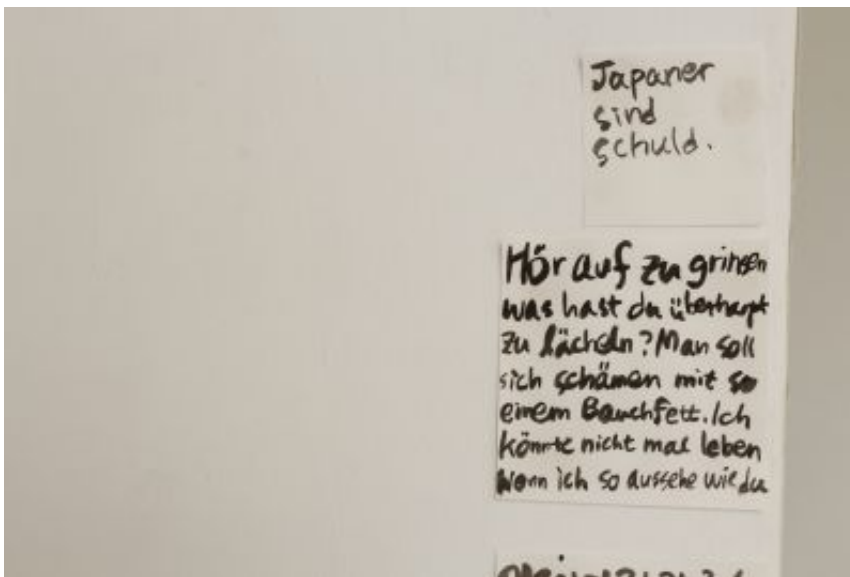 Japaner
sind
schuld.
Hör auf zu grinsen
was hast du überhaupt
zu lächeln? Man soll
sich schämen mit so
einem Bauchfett. Ich
könnte nicht mal leben
wenn ich so aussehe wie du